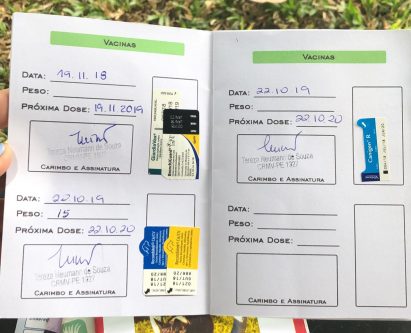 VACINAS
DATA: 19.11.18
PESO:
PRÓXIMA DOSE: 19.11.2019
Tereza Neumann de Souza
CRMV-PE 1927
CARIMBO E ASSINATURA
DATA: 22.10.19
PESO: 15
PRÓXIMA DOSE: 22.10.20
Tereza Neumann de Souza
CRMV-PE 1927
CARIMBO E ASSINATURA
VACINAS
DATA: 22.10.19
PESO:
PRÓXIMA DOSE: 22.10.20
Tereza Neumann de Souza
CRMV-PE 1927
CARIMBO E ASSINATURA
Canigen R
DATA:
PESO:
PRÓXIMA DOSE:
CARIMBO E ASSINATURA